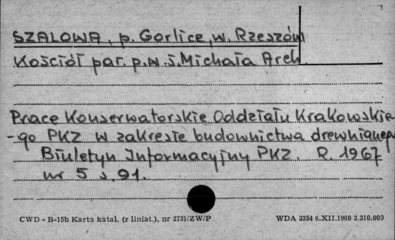 SZALOWA, p. Gorlice, w. Rzeszów
Kościół par. p.w. ś. Michała Arch
Prace Konserwatorskie Oddziału Krakowskie
-go PKZ w zakresie budownictwa drewnianego
Biuletyn Informacyjny PKZ. R. 1967
nr 5 s. 91.
CWD - B-15b Karta katal. (z liniat.), nr 2731/ZW/P
WDA 2354 6.XII.1960 3.310.000